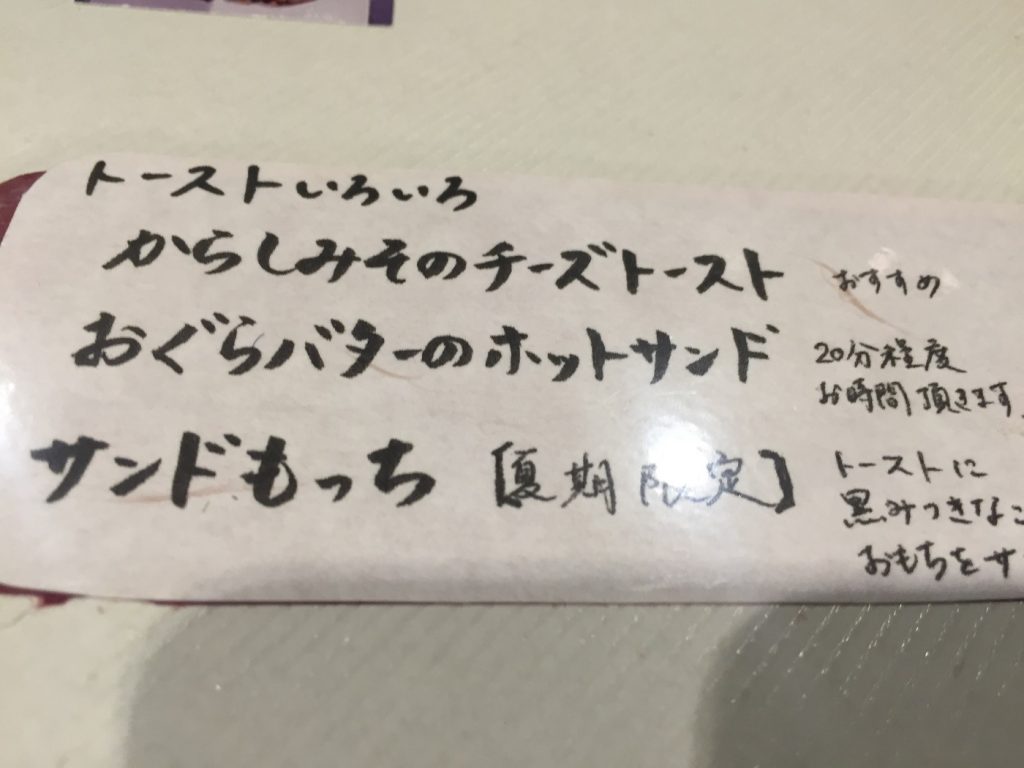 トーストいろいろ
からしみそのチーズトースト おすすめ
おぐらバターのホットサンド 20分程度
お時間頂きます。
サンドもっち [夏期限定] トーストに
黒みつきなこ
おもちをサ